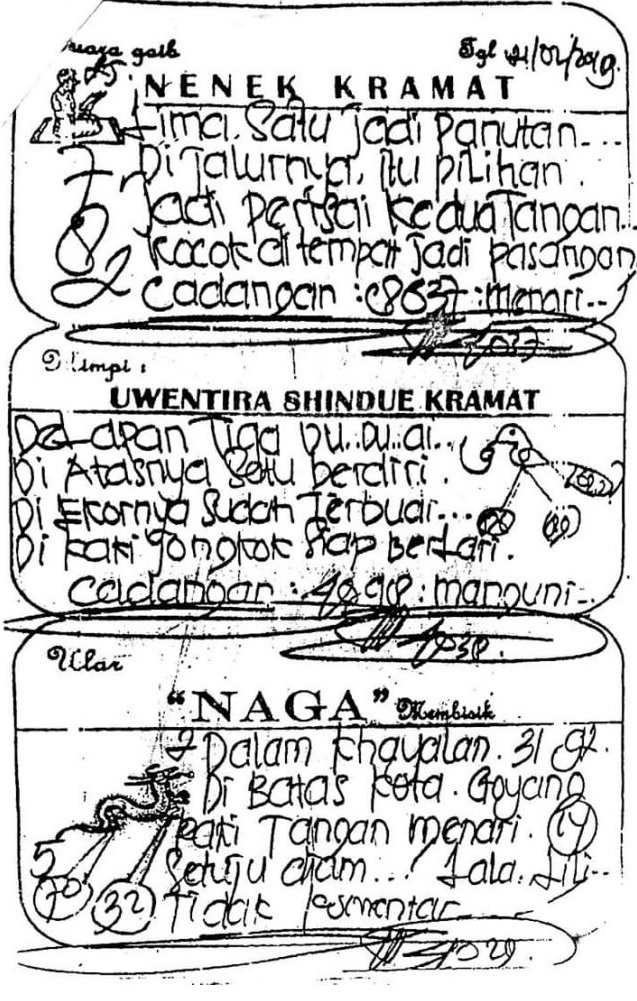 gaib
Tgl 21/02/2019.
NENEK KRAMAT
Lima. Satu jadi panutan...
Di jalurnya, itu pilihan.
Jadi perisai kedua Tangan..
Kocok di tempat jadi pasangan
Cadangan : 8637 : menari..
7
8
2
Mimpi :
UWENTIRA SHINDUE KRAMAT
De-lapan Tiga bu..bu..ai..
Di Atasnya Satu berdiri.
Di Ekornya Sudah Terbuai...
Di kaki Jongkok Siap berlari.
Cadangan : 4898 : manguni..
Ular
"NAGA" Membisik
2 Dalam khayalan. 31 92.
Di Batas kota. Goyang
kaki Tangan menari. 14
Setuju diam... ! Lala. Lili..
Tidak komentar
5
70
32